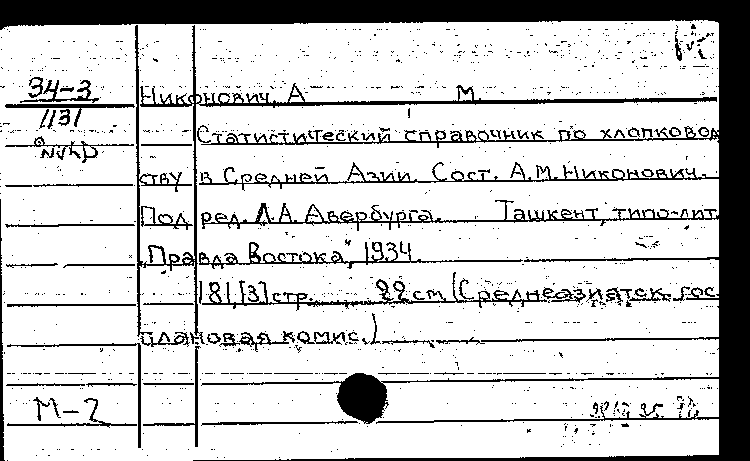 34-3
1131
Никонович, А М.
Статистический справочник по хлопковод
ству в Средней Азии. Сост. А.М. Никонович.
Под ред. Л.А. Авербурга. Ташкент, типо-лит.
„Правда Востока", 1934.
181,[3] стр. 22 см (Среднеазиатск. гос.
плановая комис.)
М-2